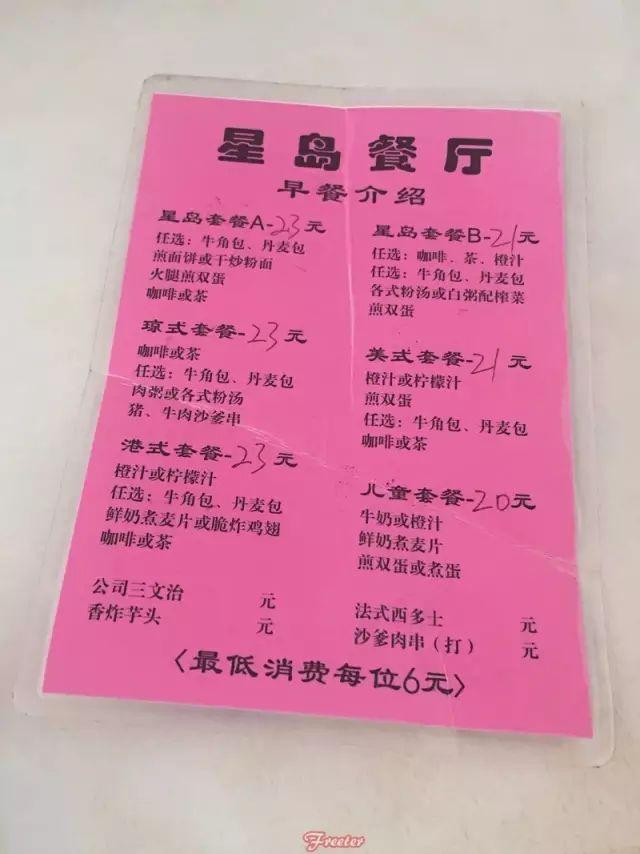 星岛餐厅
早餐介绍
星岛套餐A-23元
任选：牛角包、丹麦包
煎面饼或干炒粉面
火腿煎双蛋
咖啡或茶
琼式套餐-23元
咖啡或茶
任选：牛角包、丹麦包
肉粥或各式粉汤
猪、牛肉沙爹串
港式套餐-23元
橙汁或柠檬汁
任选：牛角包、丹麦包
鲜奶煮麦片或脆炸鸡翅
咖啡或茶
公司三文治 元
香炸芋头 元
星岛套餐B-21元
任选：咖啡、茶、橙汁
任选：牛角包、丹麦包
各式粉汤或白粥配榨菜
煎双蛋
美式套餐-21元
橙汁或柠檬汁
煎双蛋
任选：牛角包、丹麦包
咖啡或茶
儿童套餐-20元
牛奶或橙汁
鲜奶煮麦片
煎双蛋或煮蛋
法式西多士 元
沙爹肉串（打） 元
〈最低消费每位6元〉
Freeter